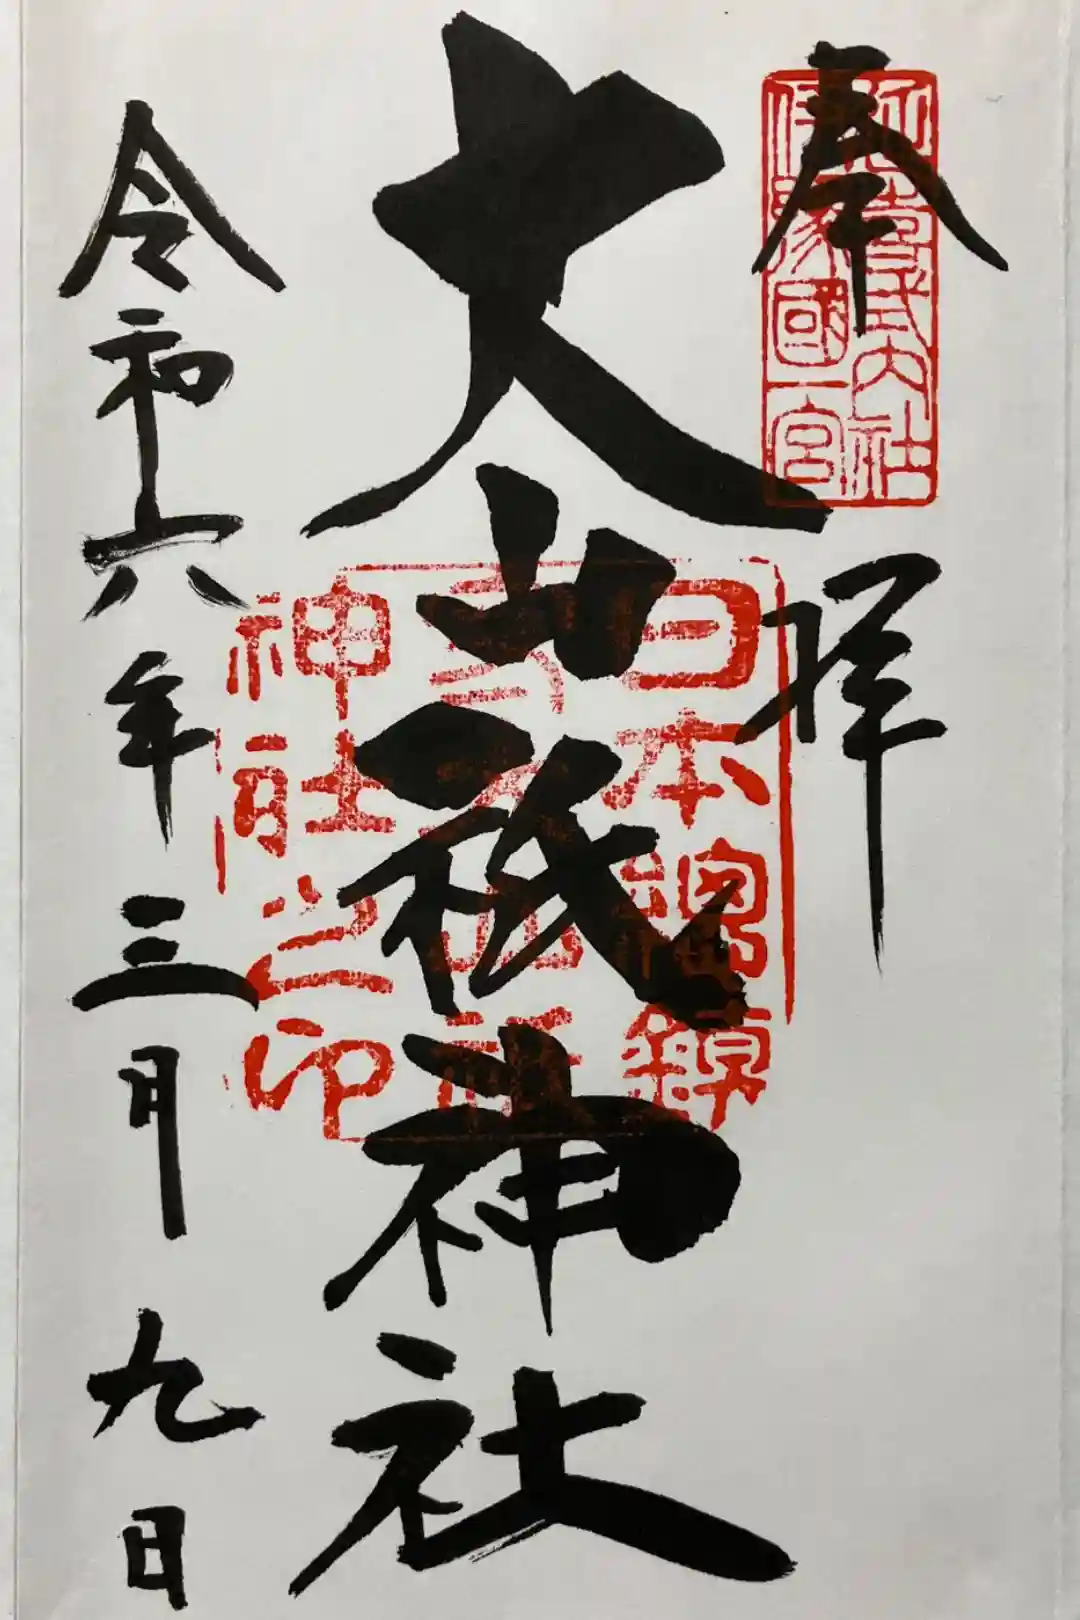 奉拝
延喜式内社
伊豫國一宮
大山祇神社
日本總鎮
守大山祇
神社之印
令和六年三月九日